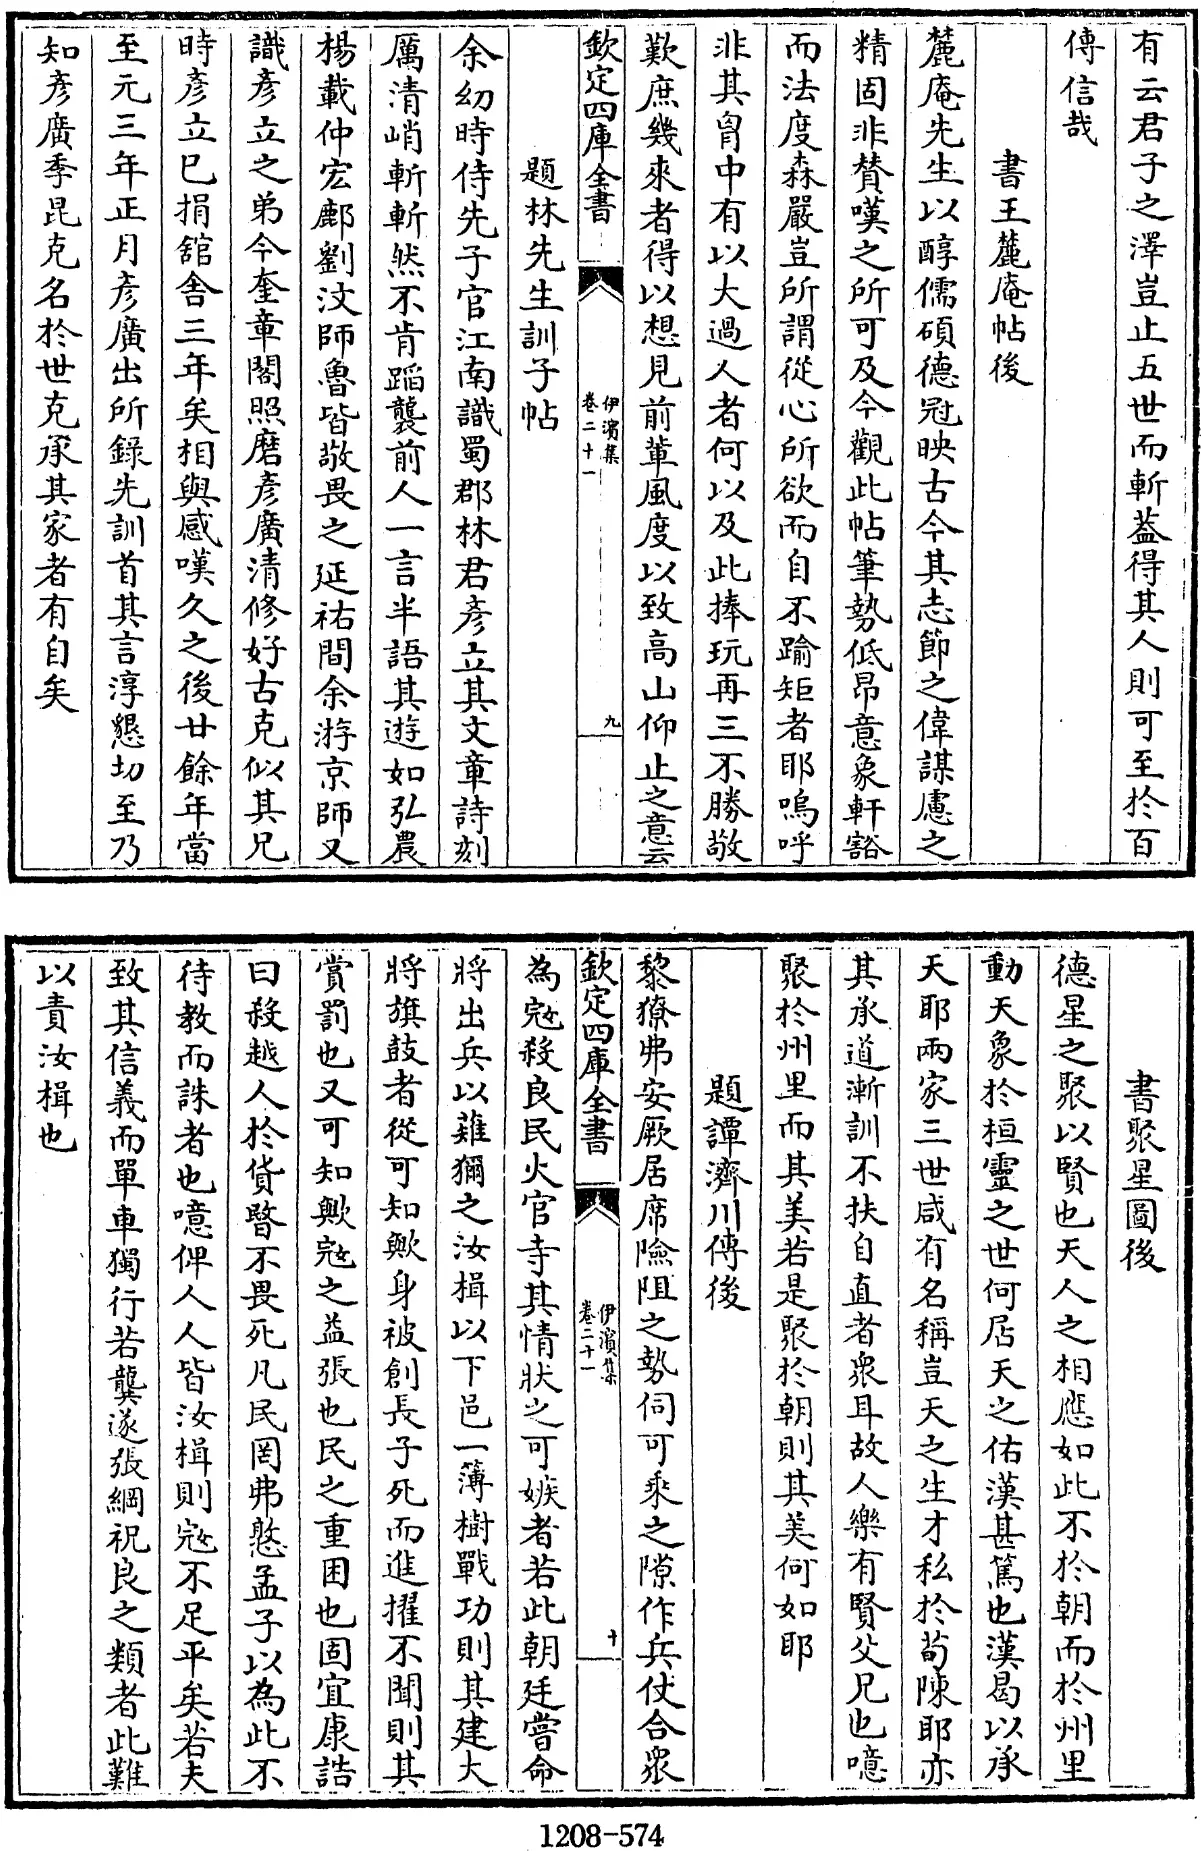 有云君子之澤豈止五世而斬蓋得其人則可至於百
傳信哉
書王麓庵帖後
麓庵先生以醇儒碩德冠映古今其志節之偉謀慮之
精固非贊嘆之所可及今觀此帖筆勢低昂意象軒豁
而法度森嚴豈所謂從心所欲而自不踰矩者耶嗚呼
非其胷中有以大過人者何以及此捧玩再三不勝敬
歎庶幾來者得以想見前軰風度以致高山仰止之意云
欽定四庫全書
伊濱集
卷二十一
九
題林先生訓子帖
余幼時侍先子官江南識蜀郡林君彥立其文章詩刻
厲清峭斬斬然不肯蹈襲前人一言半語其遊如弘農
楊載仲宏鄜劉汶師魯皆敬畏之延祐間余游京師又
識彥立之弟今奎章閣照磨彥廣清修好古克似其兄
時彥立已捐舘舍三年矣相與感嘆久之後廿餘年當
至元三年正月彥廣出所錄先訓首其言淳懇切至乃
知彥廣季昆克名於世克承其家者有自矣
書聚星圖後
德星之聚以賢也天人之相應如此不於朝而於州里
動天象於桓靈之世何居天之佑漢甚篤也漢曷以承
天耶兩家三世咸有名稱豈天之生才私於荀陳耶亦
其承道漸訓不扶自直者衆耳故人樂有賢父兄也噫
聚於州里而其美若是聚於朝則其美何如耶
題譚濟川傳後
黎獠弗安厥居席險阻之勢伺可乘之隙作兵仗合衆
欽定四庫全書
伊濱集
卷二十一
十
為寇殺良民火官寺其情狀之可嫉者若此朝廷嘗命
將出兵以薙獮之汝楫以下邑一簿樹戰功則其建大
將旗鼓者從可知歟身被創長子死而進擢不聞則其
賞罰也又可知歟寇之益張也民之重困也固宜康誥
曰殺越人於貨暋不畏死凡民罔弗憝孟子以為此不
待教而誅者也噫俾人人皆汝楫則寇不足平矣若夫
致其信義而單車獨行若龔遂張綱祝良之類者此難
以責汝楫也
1208-574